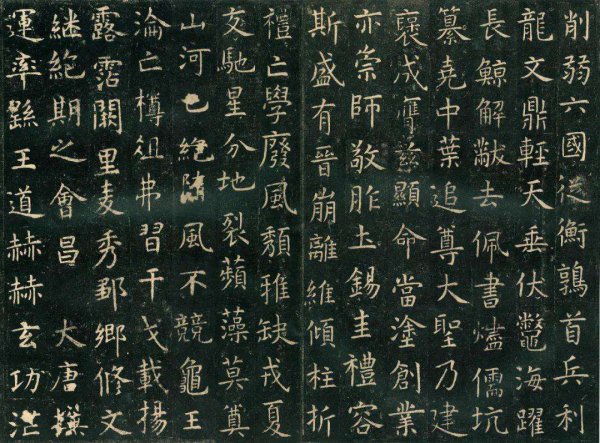 削弱六國從衡鶉首兵利
龍文鼎輕天垂伏鼈海躍
長鯨解黻去佩書燼儒坑
纂堯中葉追尊大聖乃建
襃成膺茲顯命當塗創業
亦崇師敬胙土錫圭禮容
斯盛有晉崩離維傾柱折
禮亡學廢風頽雅缺戎夏
交馳星分地裂蘋藻莫奠
山河已絕隋風不競龜玉
淪亡樽俎弗習干戈載揚
露霑闕里麦秀鄒鄉修文
繼絕期之會昌 大唐撰
運率繇王道赫赫玄功茫